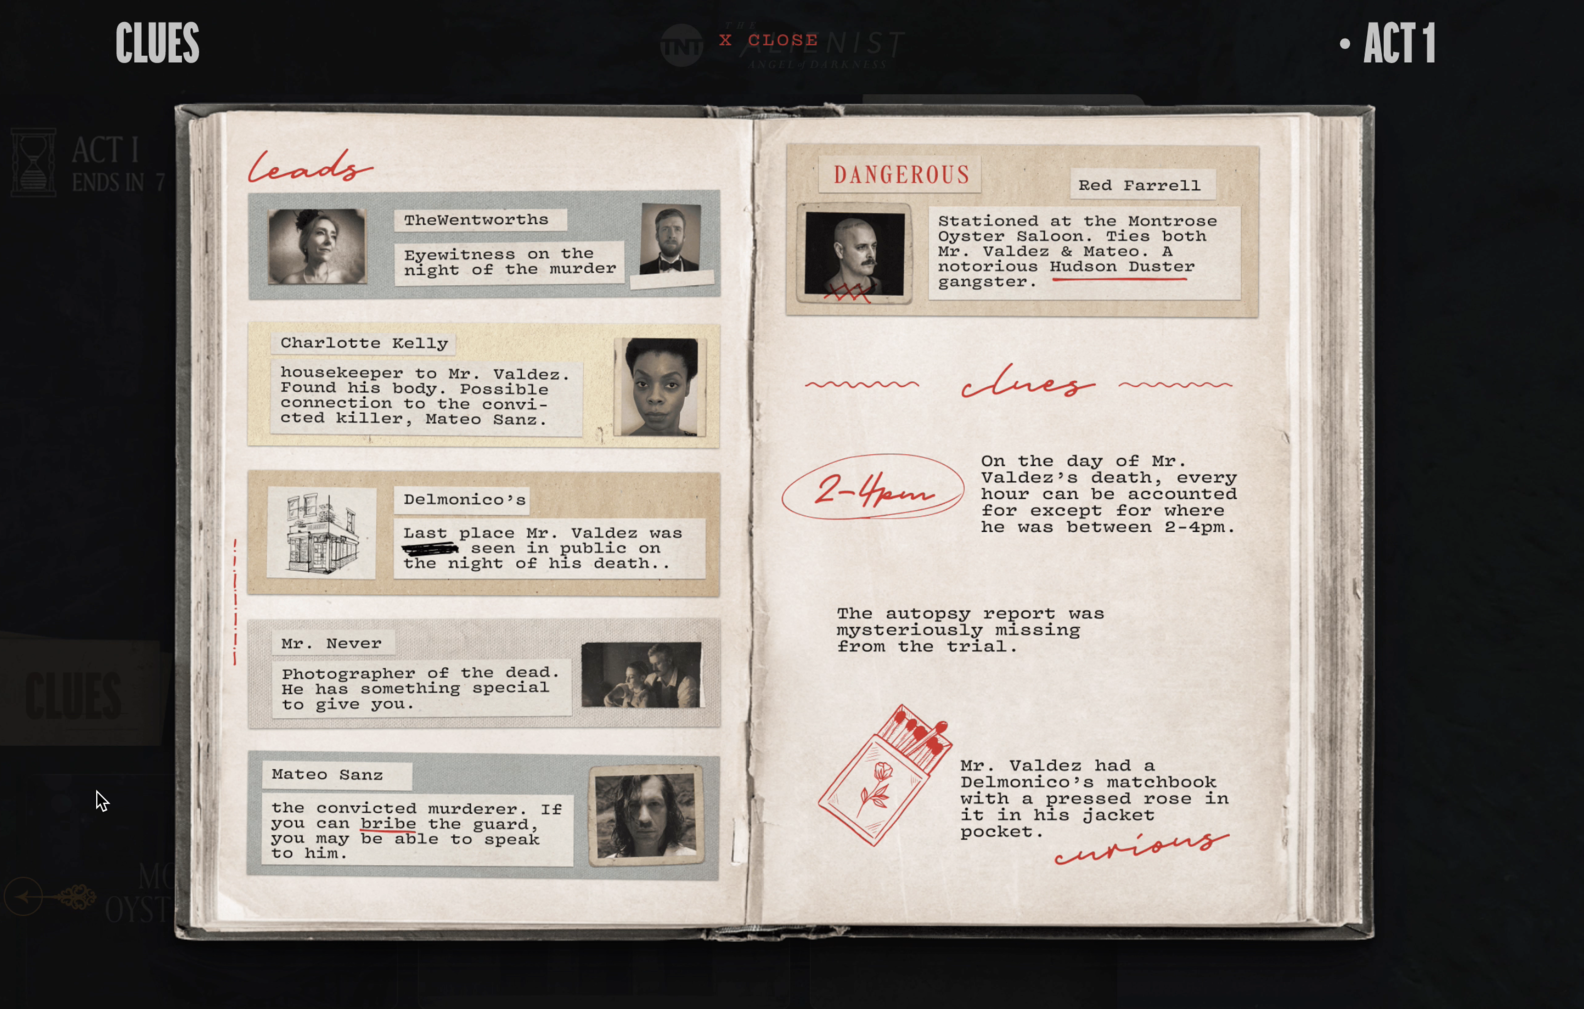 CLUES
TNT
THE
ALIENIST
ANGEL of DARKNESS
X CLOSE
• ACT 1
ACT I
ENDS IN 7
leads
TheWentworths
Eyewitness on the
night of the murder
Charlotte Kelly
housekeeper to Mr. Valdez.
Found his body. Possible
connection to the convi-
cted killer, Mateo Sanz.
Delmonico's
Last place Mr. Valdez was
seen in public on
the night of his death..
Mr. Never
Photographer of the dead.
He has something special
to give you.
Mateo Sanz
the convicted murderer. If
you can bribe the guard,
you may be able to speak
to him.
DANGEROUS
Red Farrell
Stationed at the Montrose
Oyster Saloon. Ties both
Mr. Valdez & Mateo. A
notorious Hudson Duster
gangster.
clues
2-4pm
On the day of Mr.
Valdez's death, every
hour can be accounted
for except for where
he was between 2-4pm.
The autopsy report was
mysteriously missing
from the trial.
Mr. Valdez had a
Delmonico's matchbook
with a pressed rose in
it in his jacket
pocket.
curious
CLUES
MO
OYST